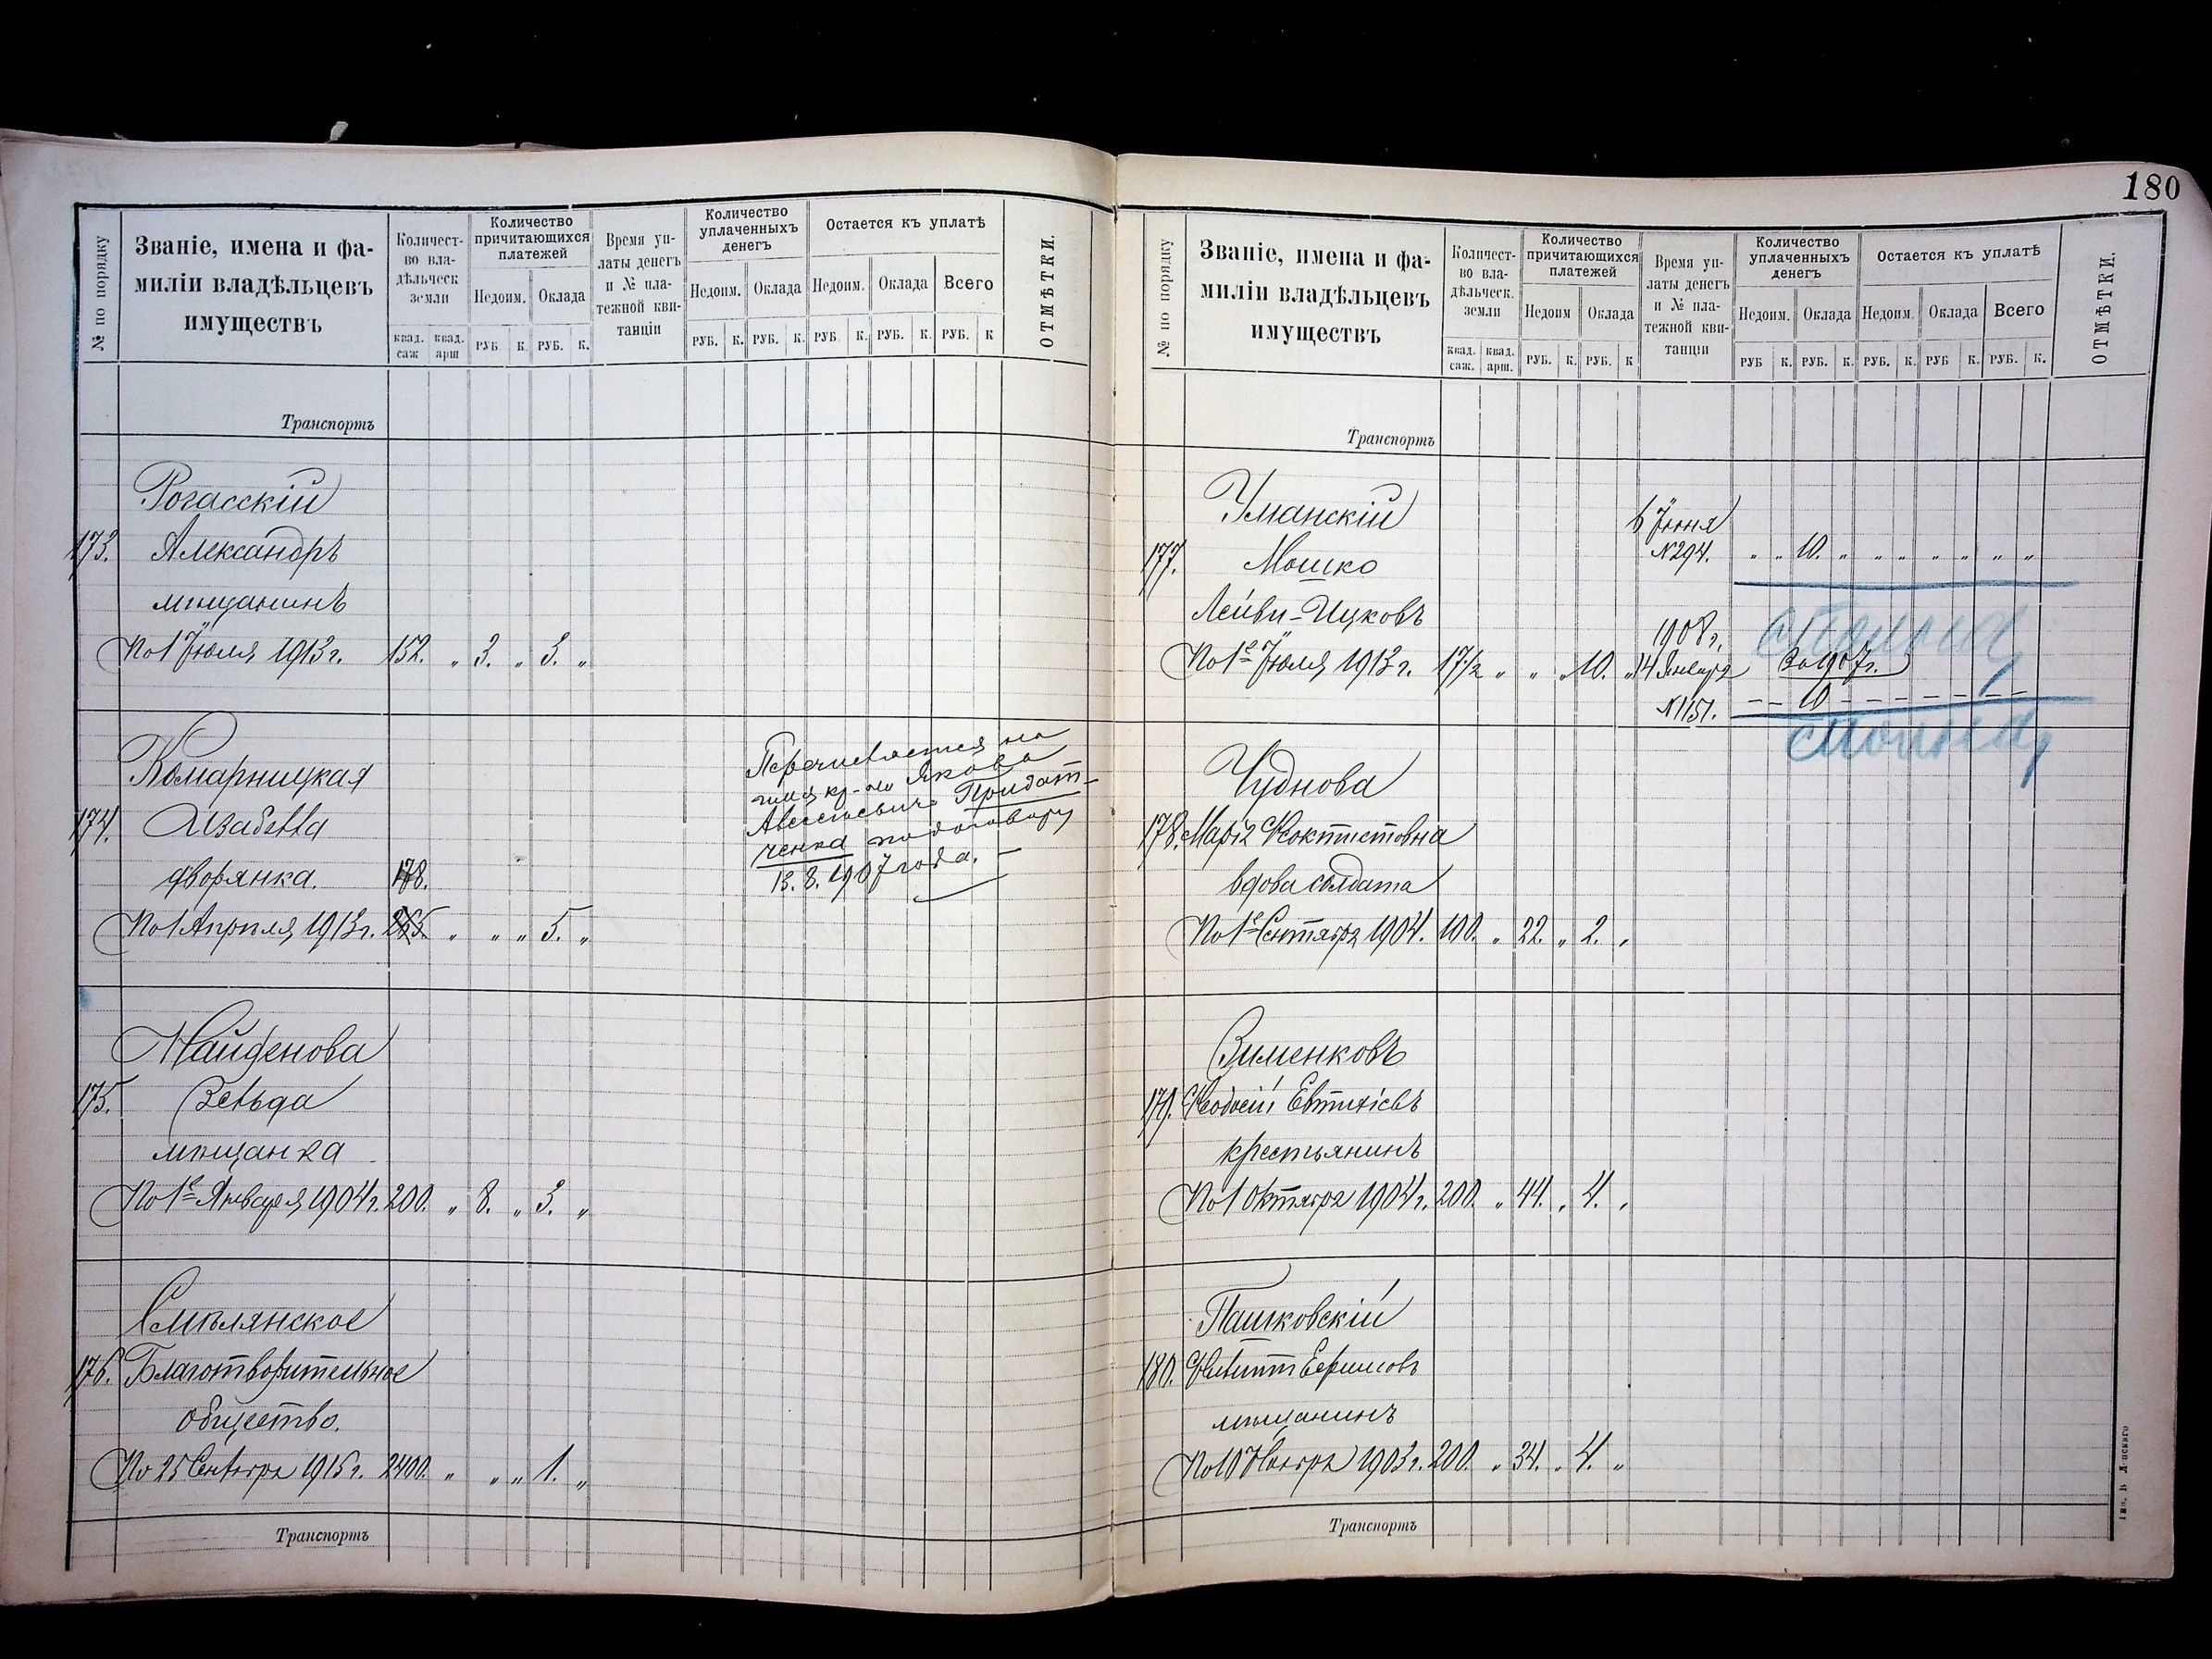 180
№ по порядку
Званіе, имена и фа-
миліи владѣльцевъ
имуществъ
Количест-
во вла-
дѣльческ
земли
квад. саж
квад. арш
Количество
причитающихся
платежей
Недоим. Оклада
РУБ К. РУБ. К.
Время уп-
латы денегъ
и № пла-
тежной кви-
танціи
Количество
уплаченныхъ
денегъ
Недоим. Оклада
РУБ. К. РУБ. К.
Остается къ уплатѣ
Недоим. Оклада Всего
РУБ К. РУБ. К. РУБ. К
ОТМѢТКИ.
Транспортъ
Рогасскій
173. Александръ
мѣщанинъ
По 1 Іюля 1913 г. 152. „ 3. „ 3. „
Комарницкая
174. Изабелла
дворянка. 178.
По 1 Апрѣля 1913 г. 265. „ „ „ 5. „
Перечисляется на
имя кр-на Якова
Авксентьевича Придат-
ченка по договору
13. 8. 1907 года.
Найденова
175. Зельда
мѣщанка
По 1е Января 1904 г. 200. „ 8. „ 3. „
Смѣлянское
176. Благотворительное
общество.
По 25 Сентября 1915 г. 2400. „ „ „ 1. „
Транспортъ
№ по порядку
Званіе, имена и фа-
миліи владѣльцевъ
имуществъ
Количест-
во вла-
дѣльческ.
земли
квад. саж.
квад. арш.
Количество
причитающихся
платежей
Недоим Оклада
РУБ. К. РУБ. К
Время уп-
латы денегъ
и № пла-
тежной кви-
танціи
Количество
уплаченныхъ
денегъ
Недоим. Оклада
РУБ К. РУБ. К.
Остается къ уплатѣ
Недоим. Оклада Всего
РУБ. К. РУБ К. РУБ. К.
ОТМѢТКИ.
Транспортъ
Уманскій
177. Мошко
Лейви-Ицковъ
По 1е Іюля 1913 г. 17 1/2 „ „ „ 10. „
6 Іюня
№ 294. „ „ 10. „ „ „ „ „ „ „
1908 г.
14 Января За 1907 г.
№ 1151. – – 10 – – – – – – –
Чуднова
178. Марія Ѳеоктистовна
вдова солдата
По 1е Сентября 1904. 100. „ 22. „ 2. „
Зименковъ
179. Ѳеодосій Евтихіевъ
крестьянинъ
По 1 Октября 1904 г. 200. „ 44. „ 4. „
Пашковскій
180. Филиппъ Ефимовъ
мѣщанинъ
По 10 Ноября 1903 г. 200. „ 34. „ 4. „
Транспортъ